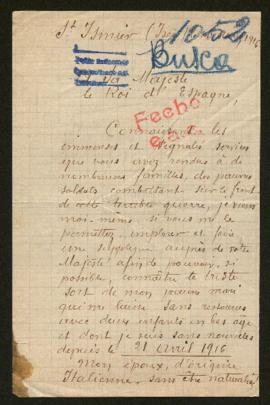 St Ismier (Is
1916
1052
Busca
A sa Majesté
le Roi d'Espagne,
Fecho
Connaissant les
immenses et signalés services
que vous avez rendus à de
nombreuses familles, des pauvres
soldats combattant sur le front
de cette terrible guerre, je viens
moi-même, si vous me le
permettez, implorer et faire
un supplique auprès de votre
Majesté afin de pouvoir, si
possible, connaître le triste
sort de mon pauvre mari
qui me laisse sans ressources
avec deux enfants en bas âge
et dont je suis sans nouvelles
depuis le 21 avril 1916
Mon époux, d'origine
Italienne, sans être naturalisé